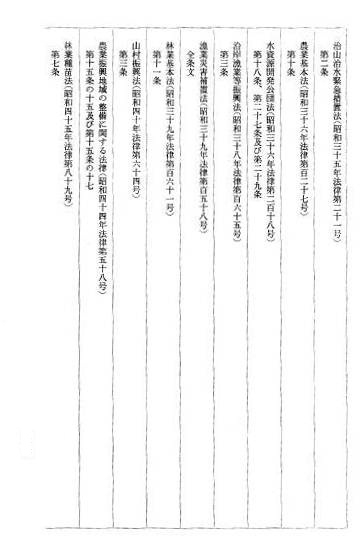 治山治水緊急措置法(昭和三十五年法律第二十一号)
第二条
農業基本法(昭和三十六年法律第百二十七号)
第十条
水資源開発公団法(昭和三十六年法律第二百十八号)
第十八条、第二十七条及び第二十九条
沿岸漁業等振興法(昭和三十八年法律第百六十五号)
第三条
漁業災害補償法(昭和三十九年法律第百五十八号)
全条文
林業基本法(昭和三十九年法律第百六十一号)
第十一条
山村振興法(昭和四十年法律第六十四号)
第三条
農業振興地域の整備に関する法律(昭和四十四年法律第五十八号)
第十五条の十五及び第十五条の十七
林業種苗法(昭和四十五年法律第八十九号)
第七条